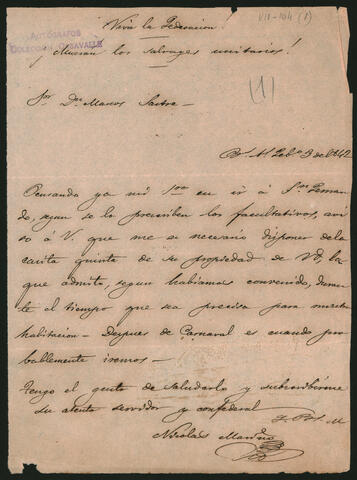 VII-104 (1)
Viva la Federacion!
AUTÓGRAFOS
COLECCIÓN CASAVALLE
¡Mueran los salvages unitarios!
(1)
Sor Dn Marcos Sastre
Bs As Febo 3 de 1842
Pensando ya mi en ir á Sn Fernan
do, segun se lo prescriben los facultativos, avi
so á V. que me es necesario disponer de la
casita quinta de su propiedad de Vd,
que admita, segun habiamos convenido, duran
te el tiempo que sea precisa para nuestra
habitacion — Despues de Carnaval es cuando pro
bablemente iremos —
Tengo el gusto de saludarlo y subscribirme
su atento servidor y confederal
Nicolás Mariño